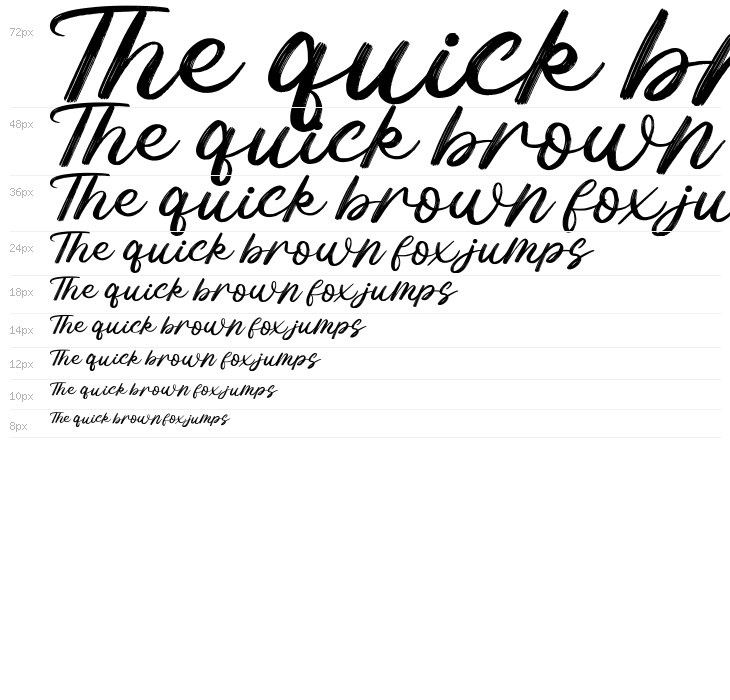 72px The quick br
48px The quick brown
36px The quick brown fox ju
24px The quick brown fox jumps
18px The quick brown fox jumps
14px The quick brown fox jumps
12px The quick brown fox jumps
10px The quick brown fox jumps
8px The quick brown fox jumps